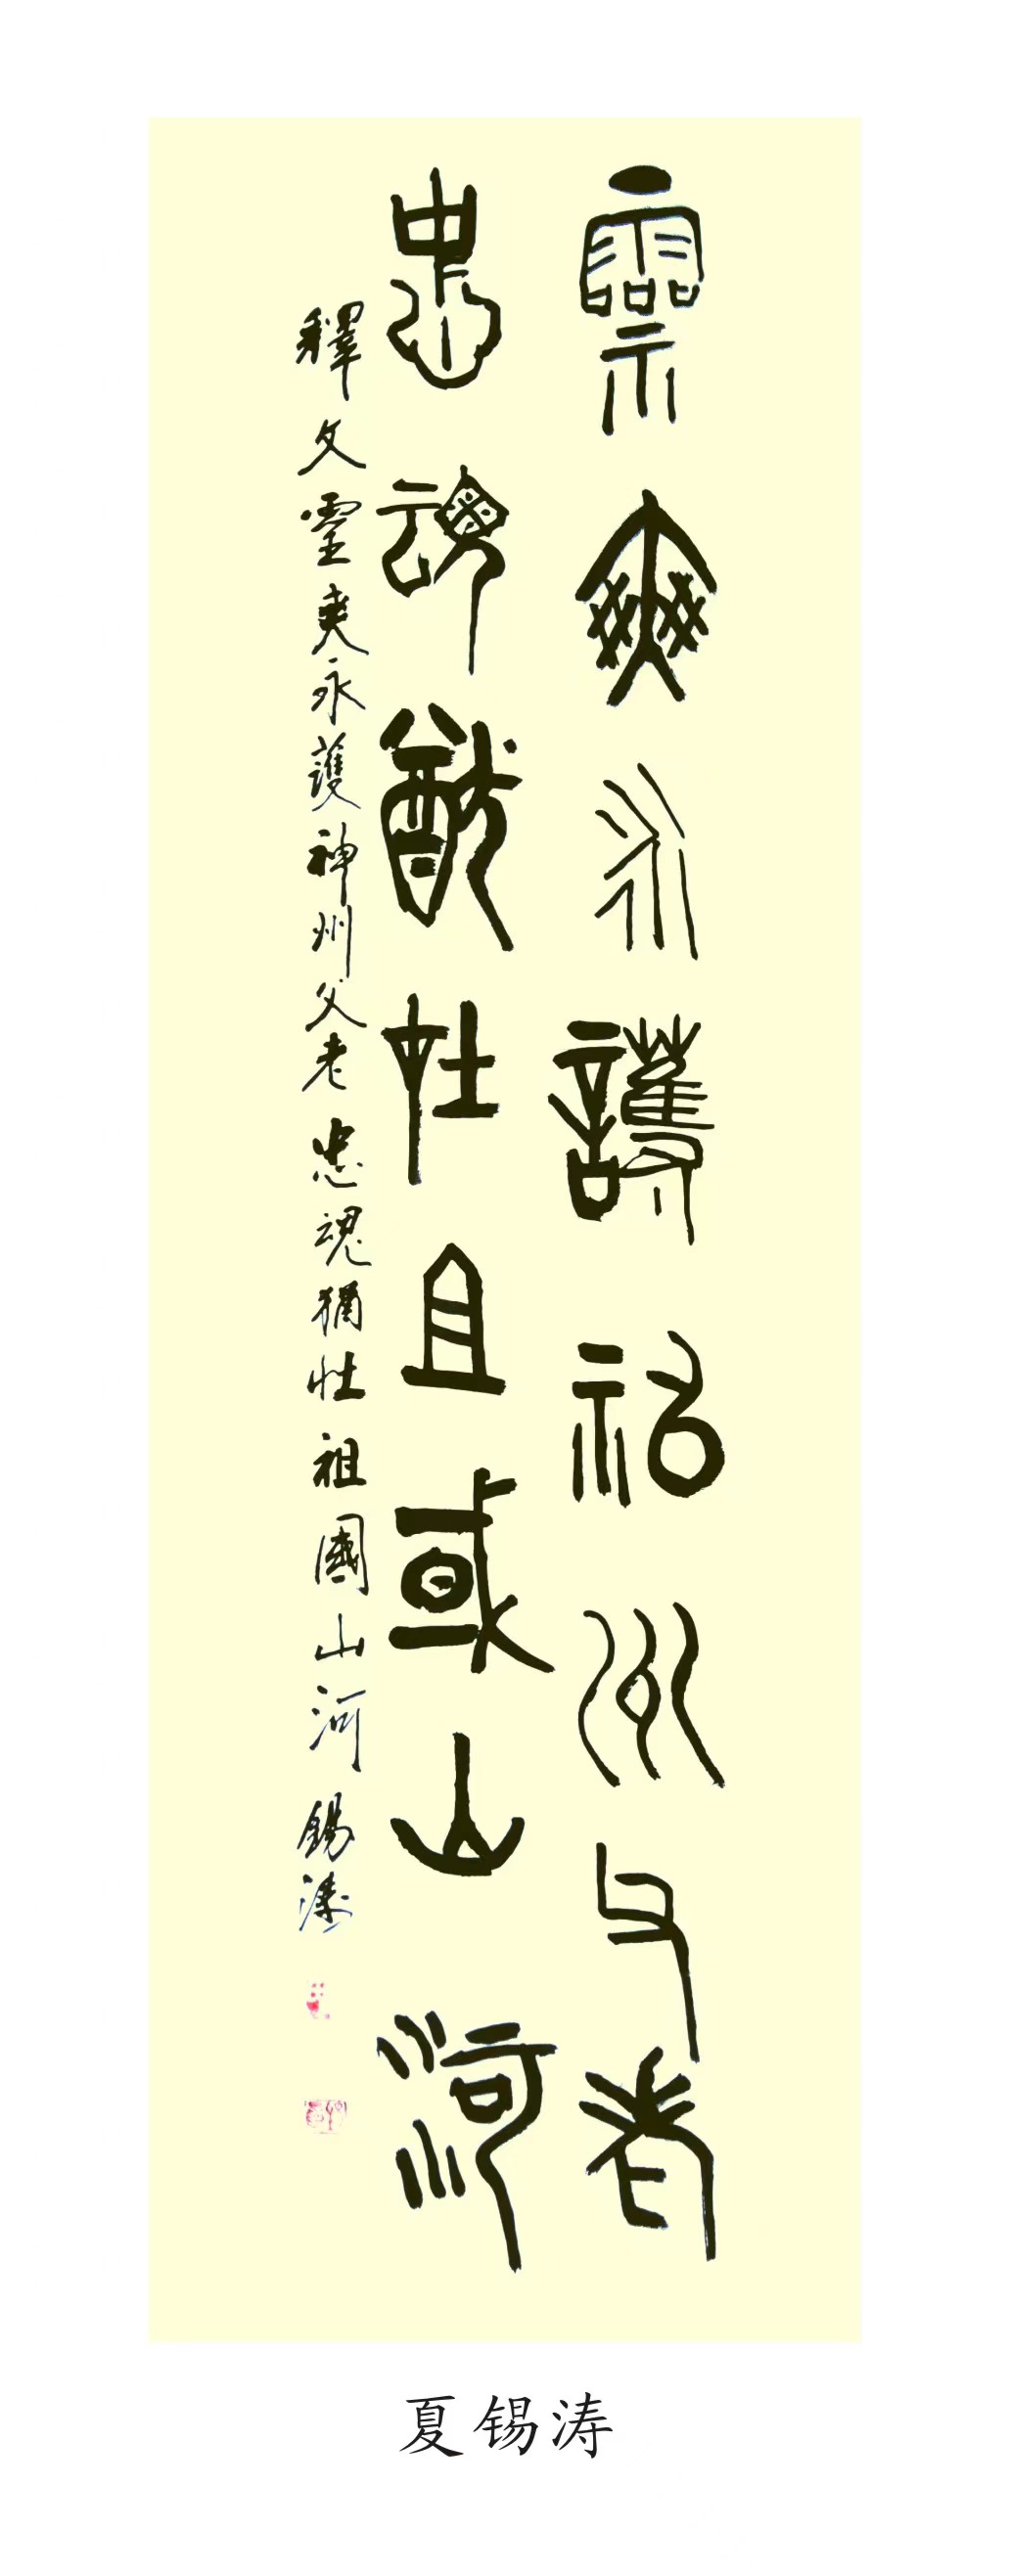 靈爽永護神州父老
忠魂猶壮且或山河
釋文靈爽永護神州父老忠魂猶壮祖國山河錫濤
夏锡涛